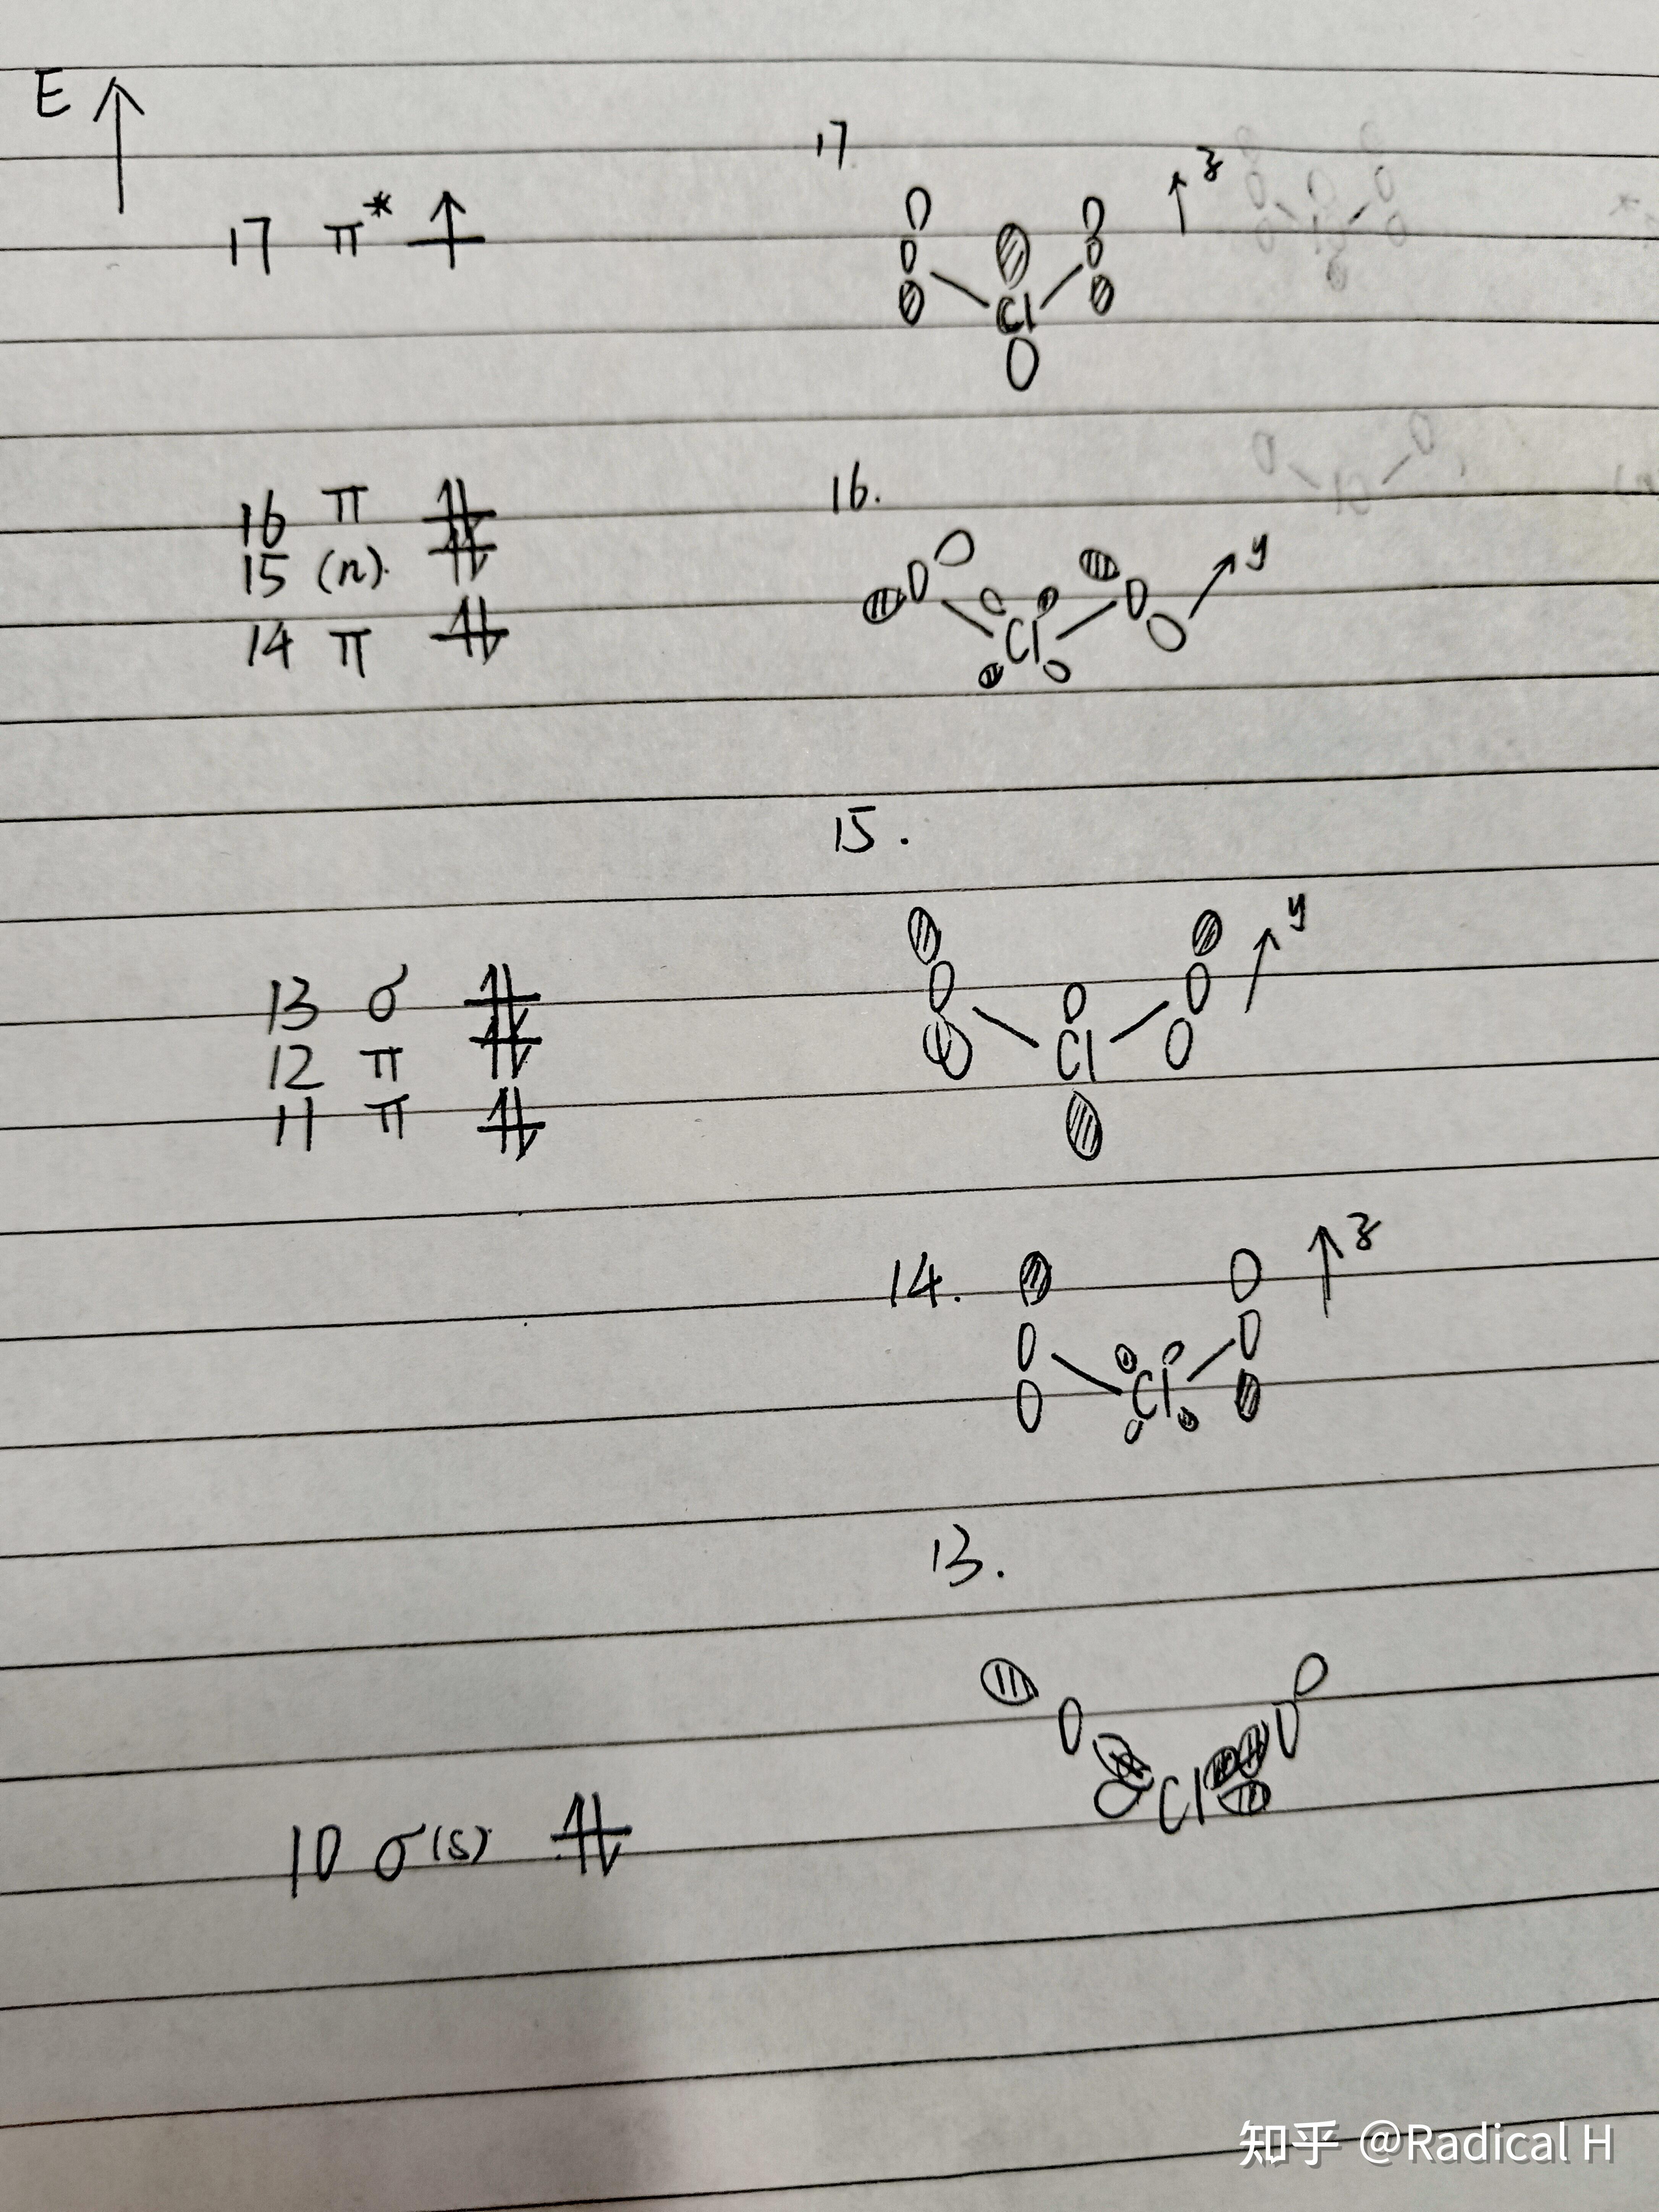 E ↑
17 π* ↑
16 π ⥮
15 (n). ⥮
14 π ⥮
13 σ ⥮
12 π ⥮
11 π ⥮
10 σ(s) ⥮
17
z
O O
Cl
16.
y
O O
Cl
15.
y
O O
Cl
14.
z
O O
Cl
13.
O O
Cl
知乎 @Radical H